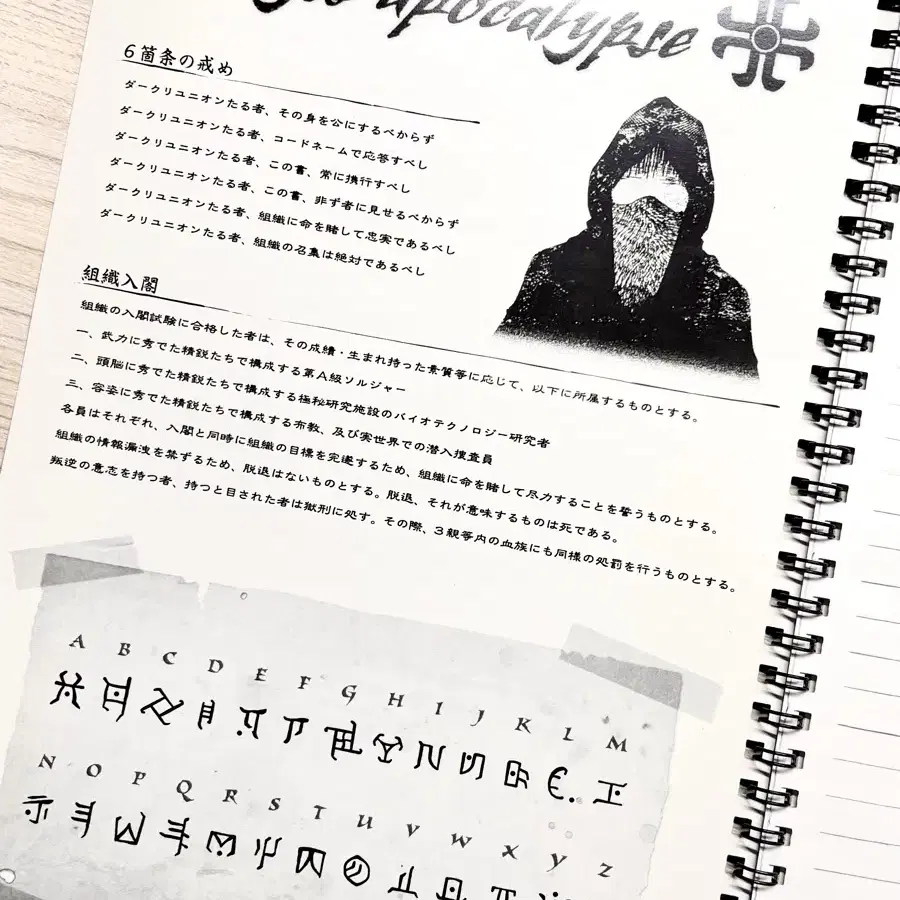 apocalypse
6箇条の戒め
ダークリユニオンたる者、その身を公にするべからず
ダークリユニオンたる者、コードネームで応答すべし
ダークリユニオンたる者、この書、常に携行すべし
ダークリユニオンたる者、この書、非ず者に見せるべからず
ダークリユニオンたる者、組織に命を賭して忠実であるべし
ダークリユニオンたる者、組織の召集は絶対であるべし
組織入閣
組織の入閣試験に合格した者は、その成績・生まれ持った素質等に応じて、以下に所属するものとする。
一、武力に秀でた精鋭たちで構成する第A級ソルジャー
二、頭脳に秀でた精鋭たちで構成する極秘研究施設のバイオテクノロジー研究者
三、容姿に秀でた精鋭たちで構成する布教、及び実世界での潜入捜査員
各員はそれぞれ、入閣と同時に組織の目標を完遂するため、組織に命を賭して尽力することを誓うものとする。
組織の情報漏洩を禁ずるため、脱退はないものとする。脱退、それが意味するものは死である。
叛逆の意志を持つ者、持つと目された者は獄刑に処す。その際、3親等内の血族にも同様の処罰を行うものとする。
A B C D E F G H I J K L M
N O P Q R S T U V W X Y Z